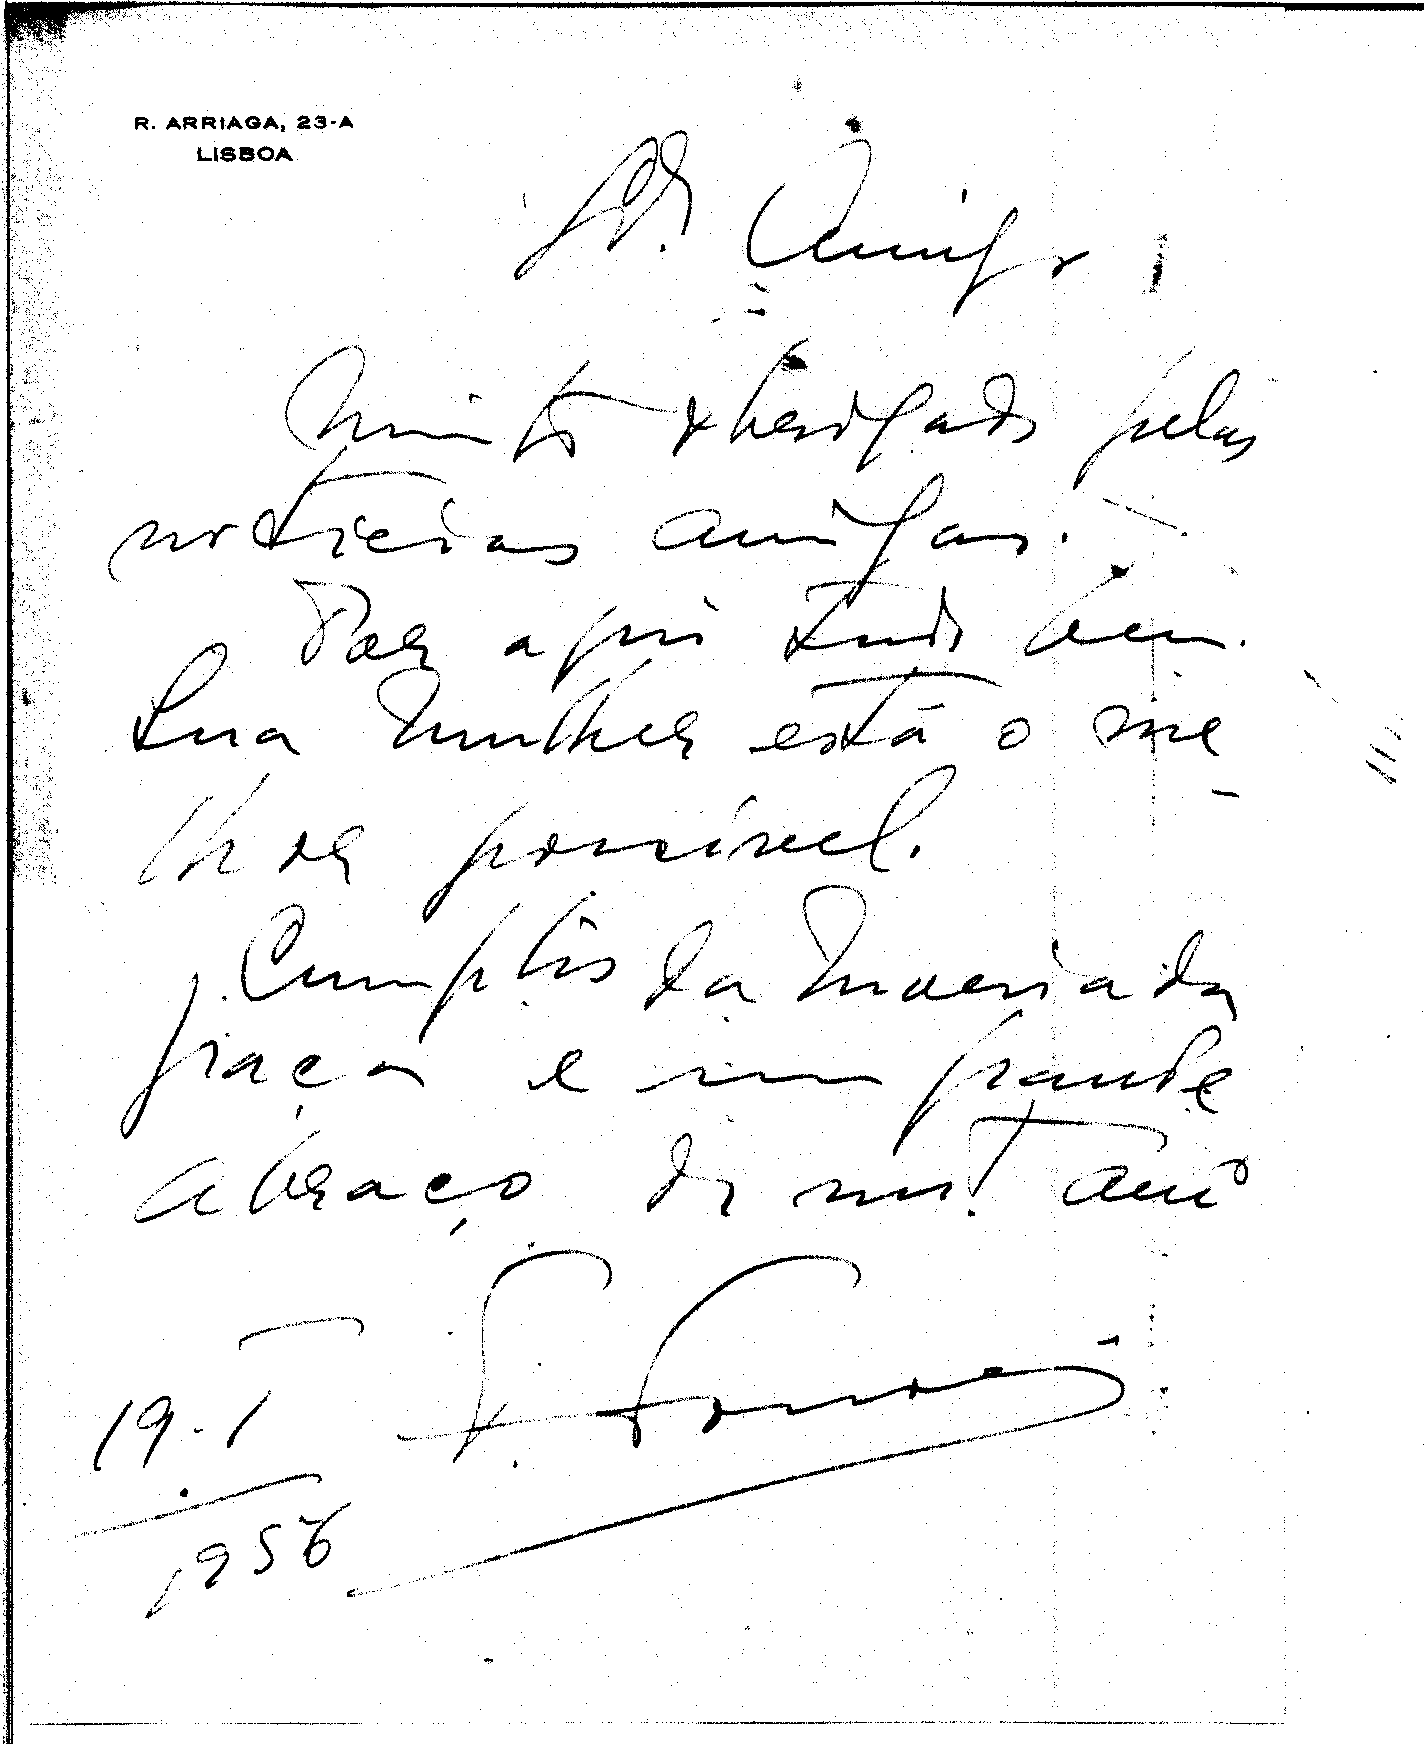 R. ARRIAGA, 23-A
LISBOA
Amigo
Muito obrigado pelas
noticias amigas.
Por aqui tudo bem.
Sua Mulher está o me
lhor possivel.
Cumptos da Maria da
graça e um grande
abraço do mt. amo
19.I
1956